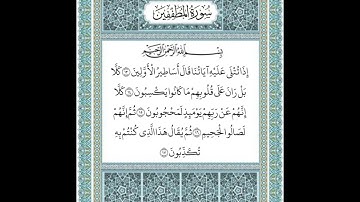 سورة المطففين
بِسْمِ اللَّهِ الرَّحْمَٰنِ الرَّحِيمِ
إِذَا تُتْلَىٰ عَلَيْهِ آيَاتُنَا قَالَ أَسَاطِيرُ الْأَوَّلِينَ ﴿١٣﴾ كَلَّا
بَلْ رَانَ عَلَىٰ قُلُوبِهِمْ مَا كَانُوا يَكْسِبُونَ ﴿١٤﴾ كَلَّا
إِنَّهُمْ عَنْ رَبِّهِمْ يَوْمَئِذٍ لَمَحْجُوبُونَ ﴿١٥﴾ ثُمَّ إِنَّهُمْ
لَصَالُو الْجَحِيمِ ﴿١٦﴾ ثُمَّ يُقَالُ هَٰذَا الَّذِي كُنْتُمْ بِهِ
تُكَذِّبُونَ ﴿١٧﴾